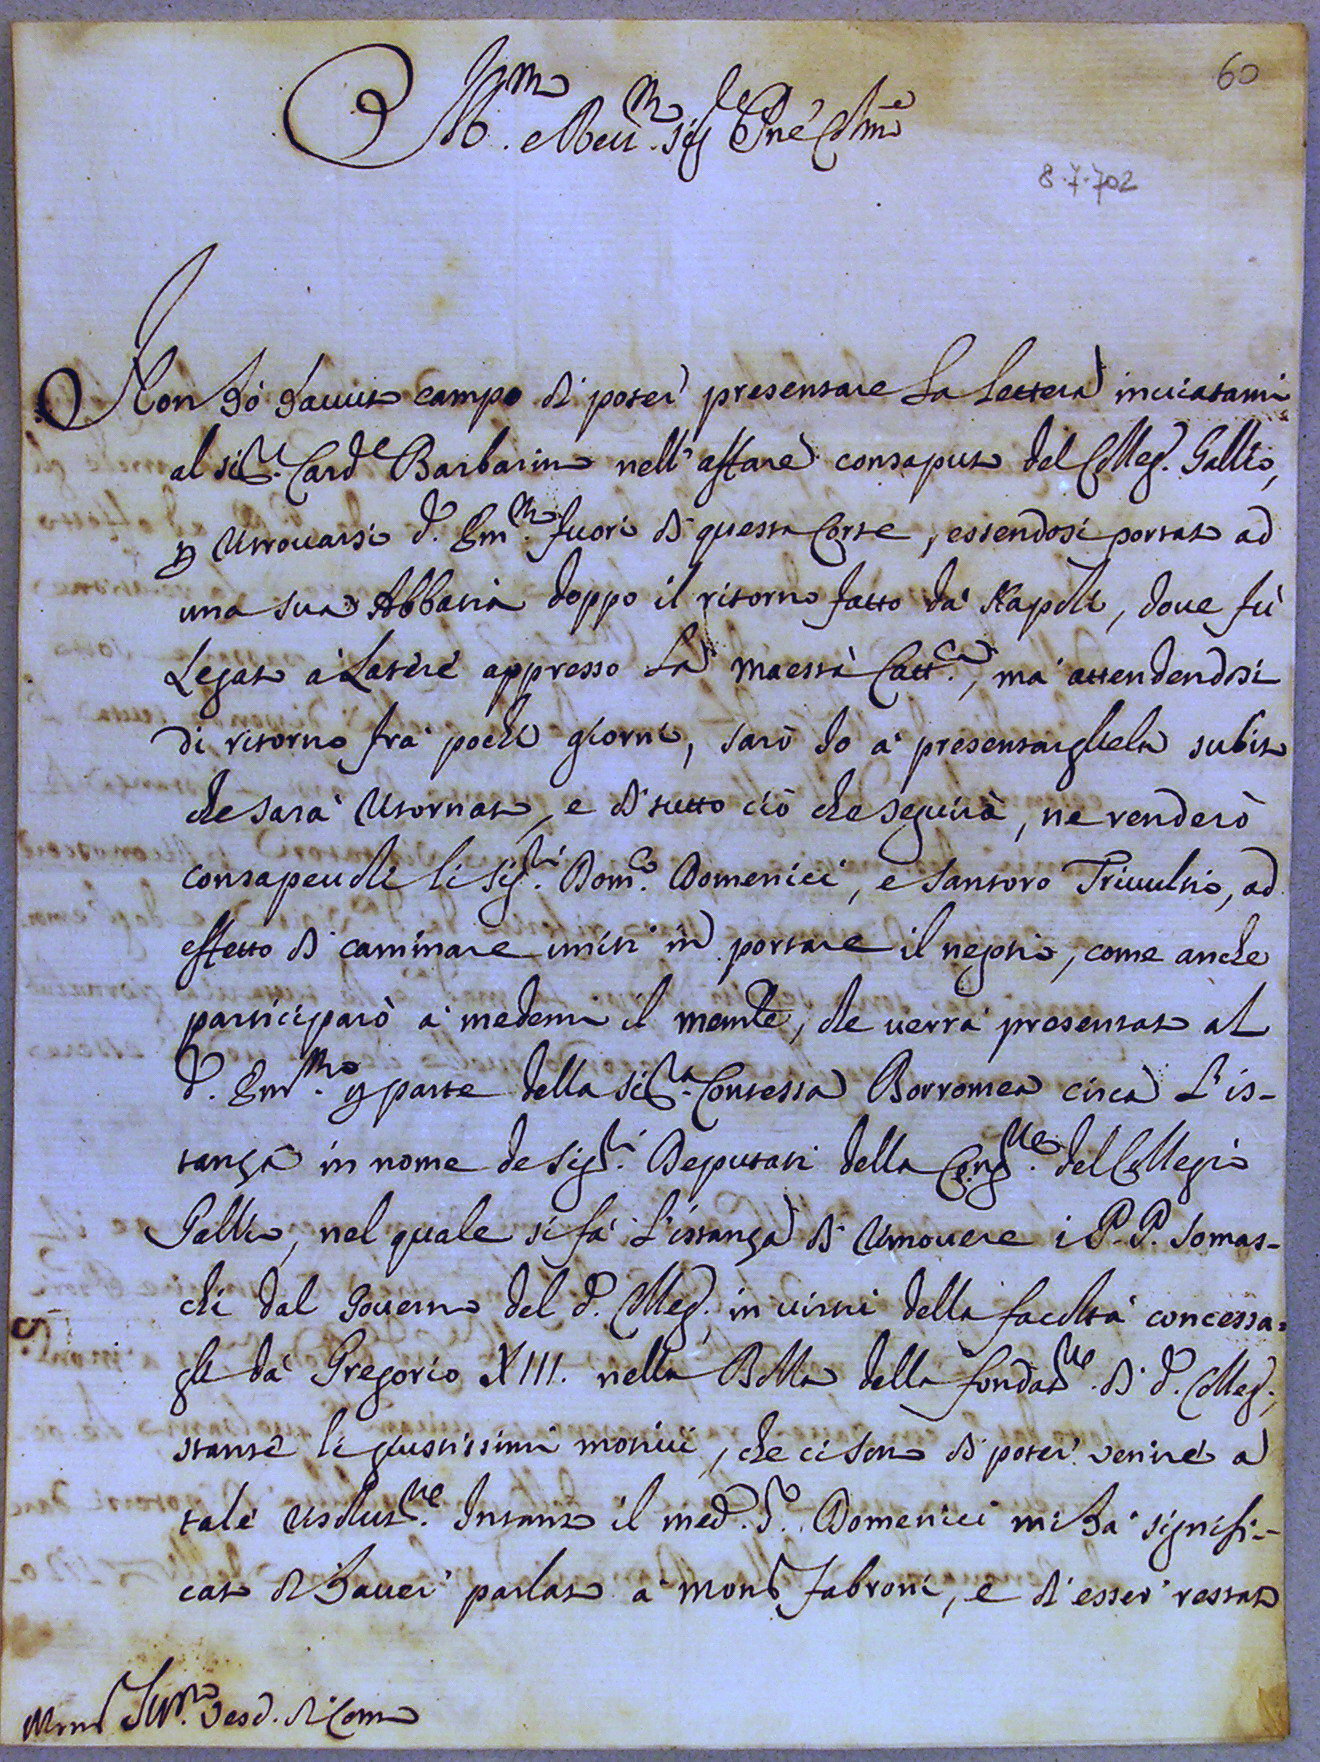 60
Ill.mo e Reu.mo Sig.re P.ne Col.mo
8.7.702
Non hò hauuto campo di poter presentare la lettera inuiatami
al Sig.r Card.le Barbarino nell'affare consaputo del Colleg. Gallio,
p ritrouarsi d. Em.mo fuori di questa Corte, essendosi portato ad
una sua Abbatia doppo il ritorno fatto da Napoli, doue fù
Legato à Latere appresso la Maestà Catt.ca, mà attendendosi
di ritorno frà pochi giorni, sarò Io à presentargliela subito
che sarà ritornato, e di tutto ciò che seguirà, ne renderò
consapeuoli li Sig.ri Dom.co Domenici, e Santoro Triuultio, ad
effetto di caminare uniti in portare il negotio, come anche
participarò à medemi il mem.le, che uerrà presentato al
d. Em.mo p parte della Sig.ra Contessa Borromea circa l'is-
tanza in nome de Sig.ri Deputati della Cong.ne del Collegio
Gallio, nel quale si fà l'istanza di rimouere i P.P. Somas-
chi dal Gouerno del d. Colleg. in uirtù della facoltà concessa-
gli da Gregorio XIII. nella Bolla della fondat.ne di d. Colleg.,
stante li giustissimi motiui, che ci sono di poter uenire à
tale risolut.ne. Intanto il med.o S.r Domenici mi hà signifi-
cato di hauer parlato à Mons.r Fabroni, e di esser restato
Mons.r Ill.mo Vesc. di Como